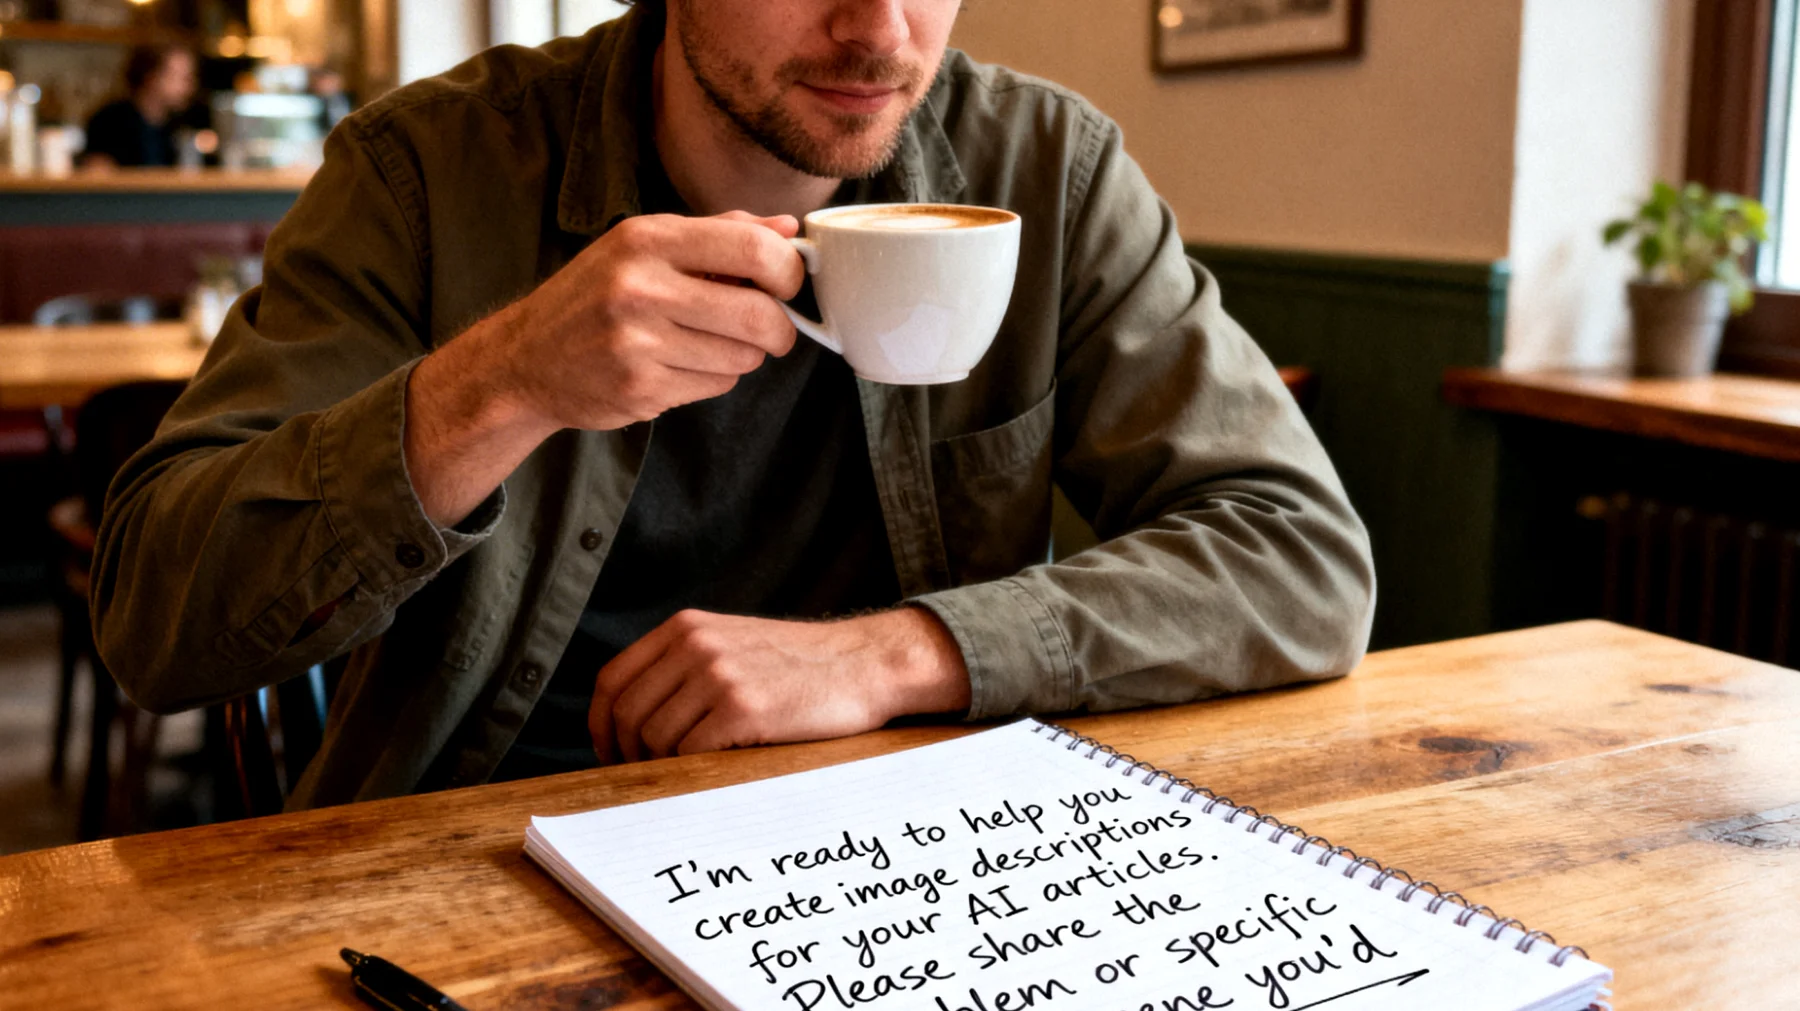 I'm ready to help you
create image descriptions
for your AI articles.
Please share the
or specific
you'd